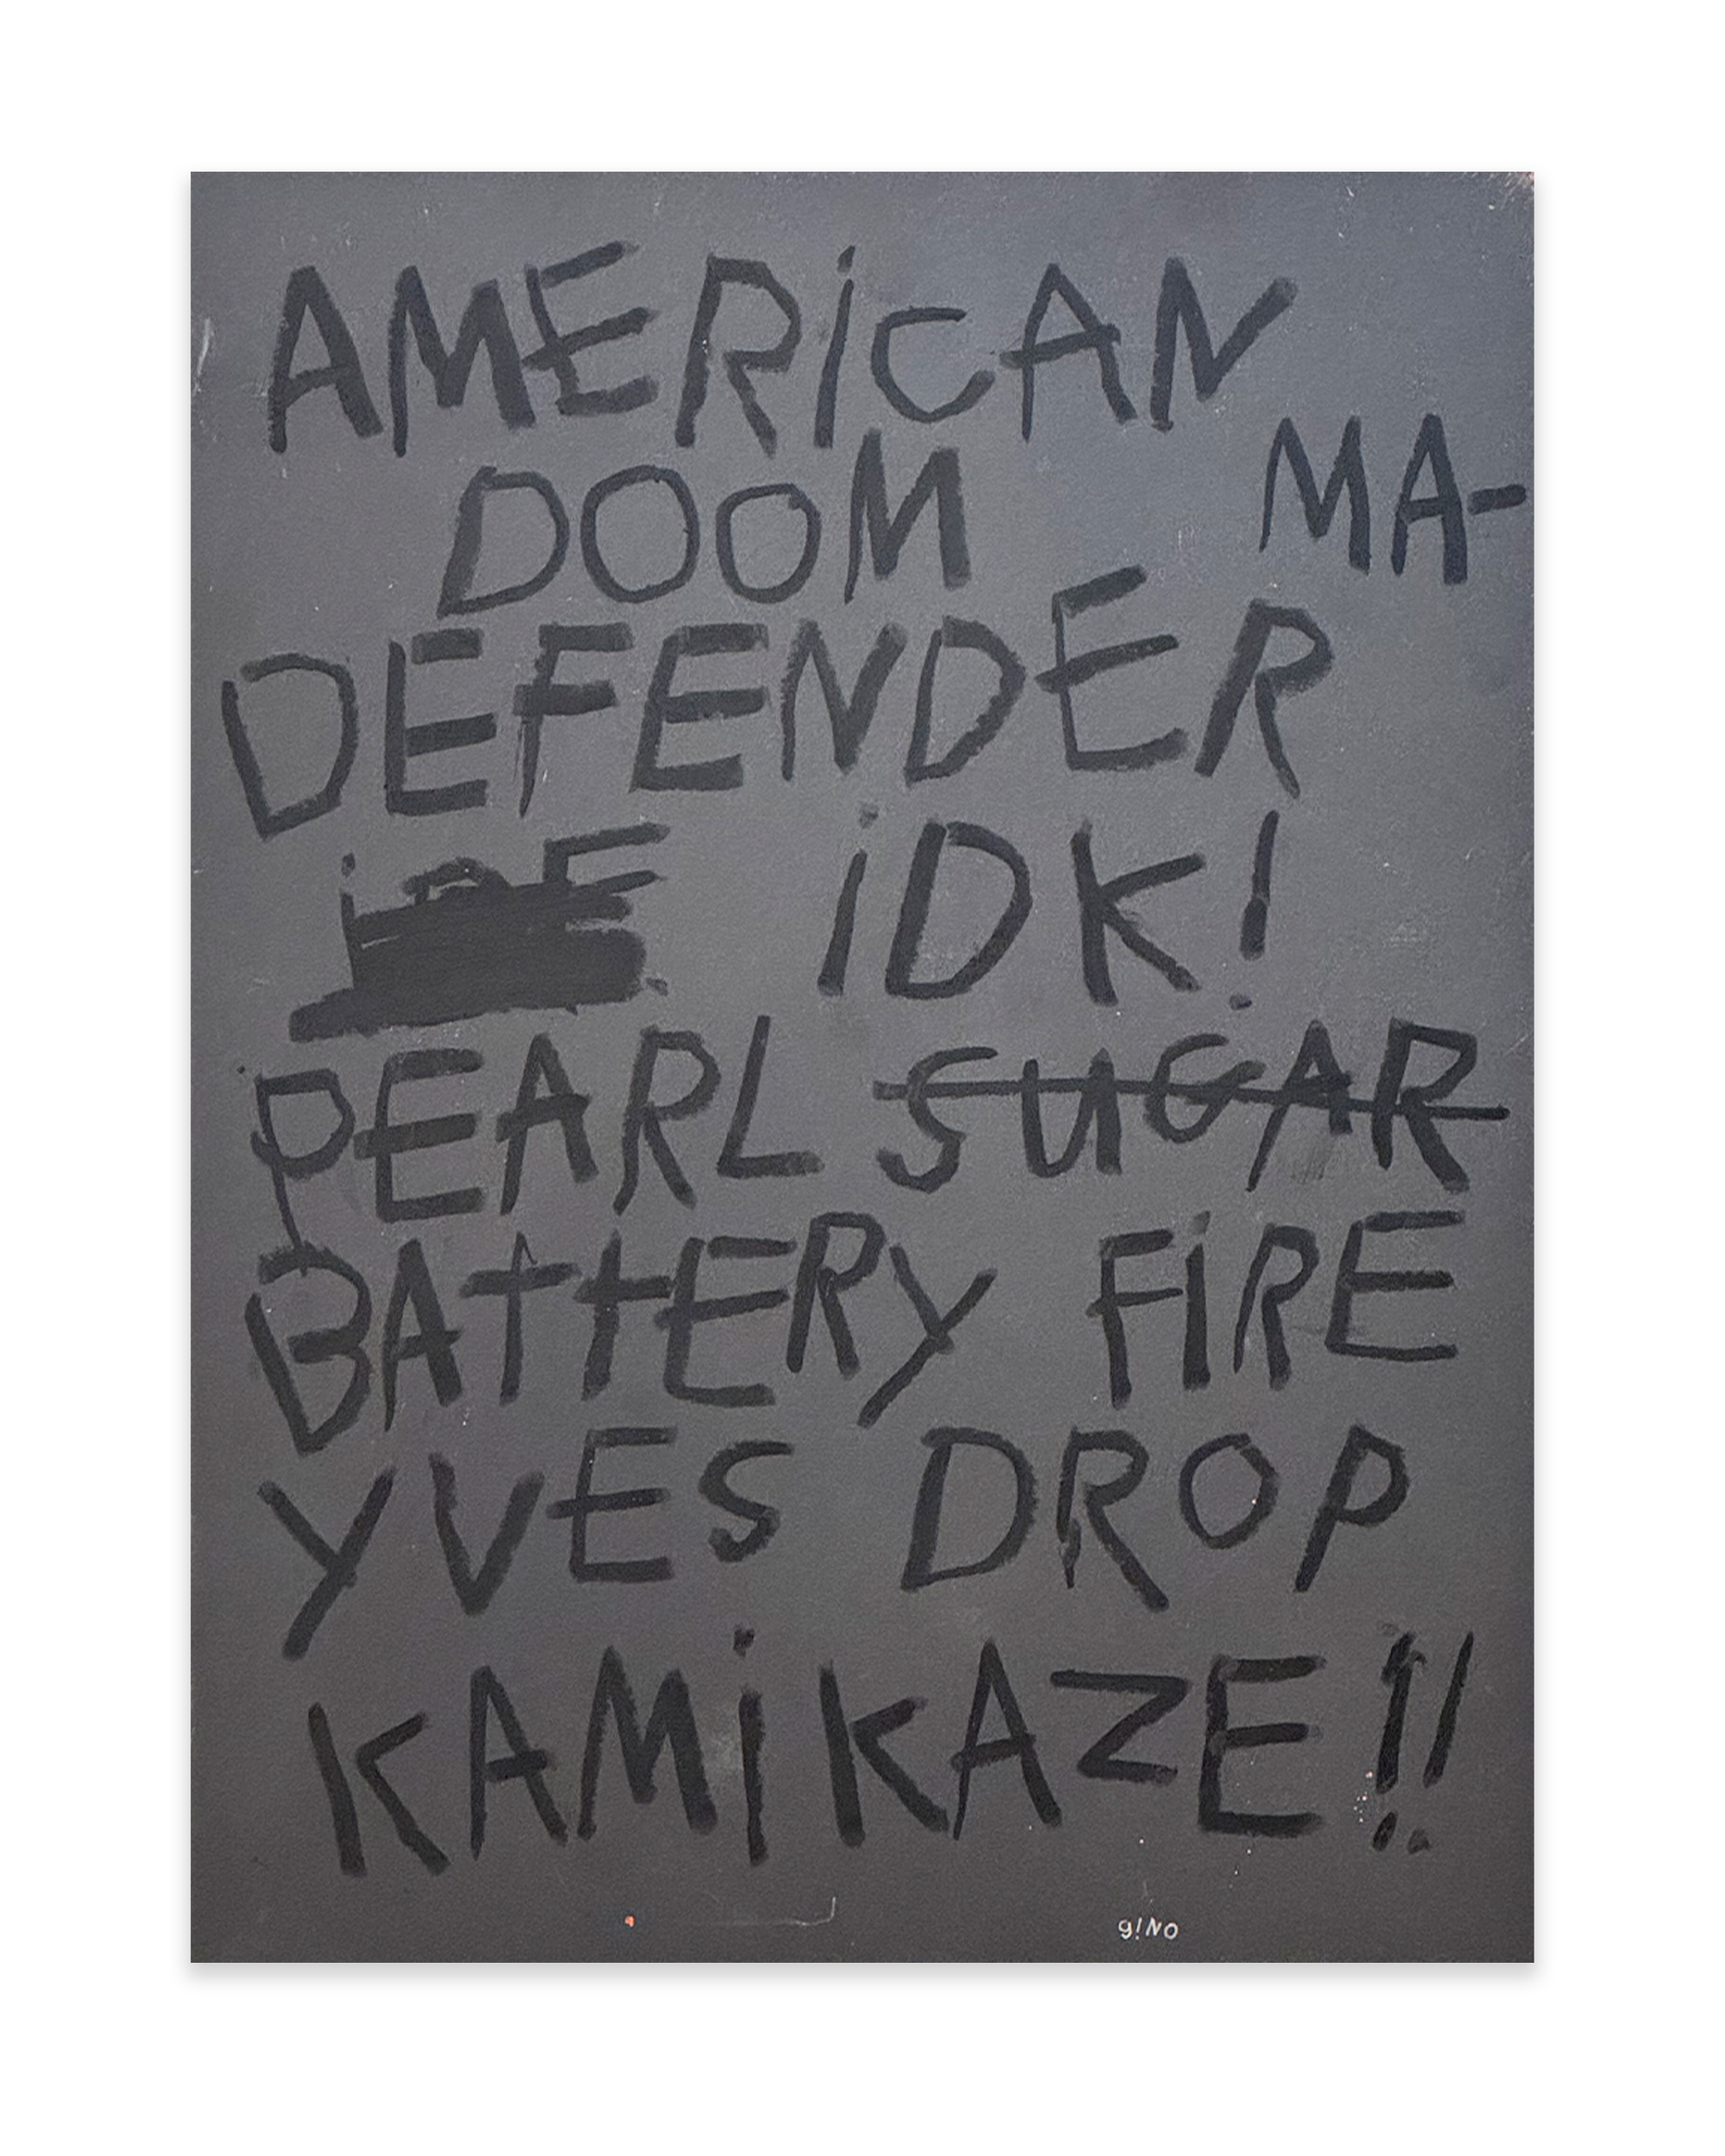 AMERiCAN
DOOM MA-
DEFENDER
iDK!
PEARL SUGAR
BAttERY FiRE
YVES DROP
KAMiKAZE!!
giNO